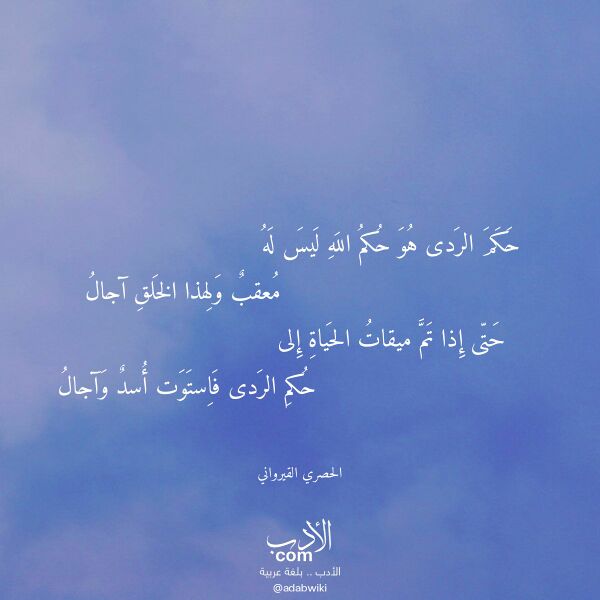 حَكَمَ الرَدى هُوَ حُكمُ اللَهِ لَيسَ لَهُ
مُعقبٌ وَلِهذا الخَلَقِ آجالُ
حَتّى إِذا تَمَّ ميقاتُ الحَياةِ إِلى
حُكمِ الرَدى فَاِستَوَت أُسدٌ وَآجالُ
الحصري القيرواني
الأدب
com
الأدب .. بلغة عربية
@adabwiki